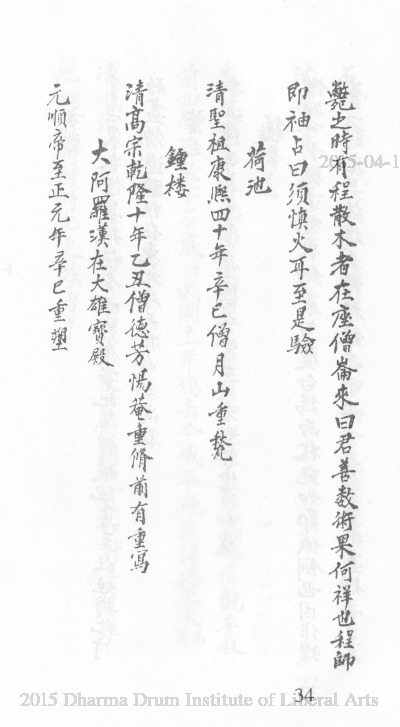 甃之時有程散木者在座僧崙來曰君善数術果何祥也程師
即袖占曰須慎火耳至是驗
荷池
清聖祖康熙四十年辛巳僧月山重甃
鐘楼
清高宗乾隆十年乙丑僧德芳惕菴重脩前有重寫
大阿羅漢在大雄寶殿
元順帝至正元年辛巳重塑
2015-04-1
34
2015 Dharma Drum Institute of Liberal Arts